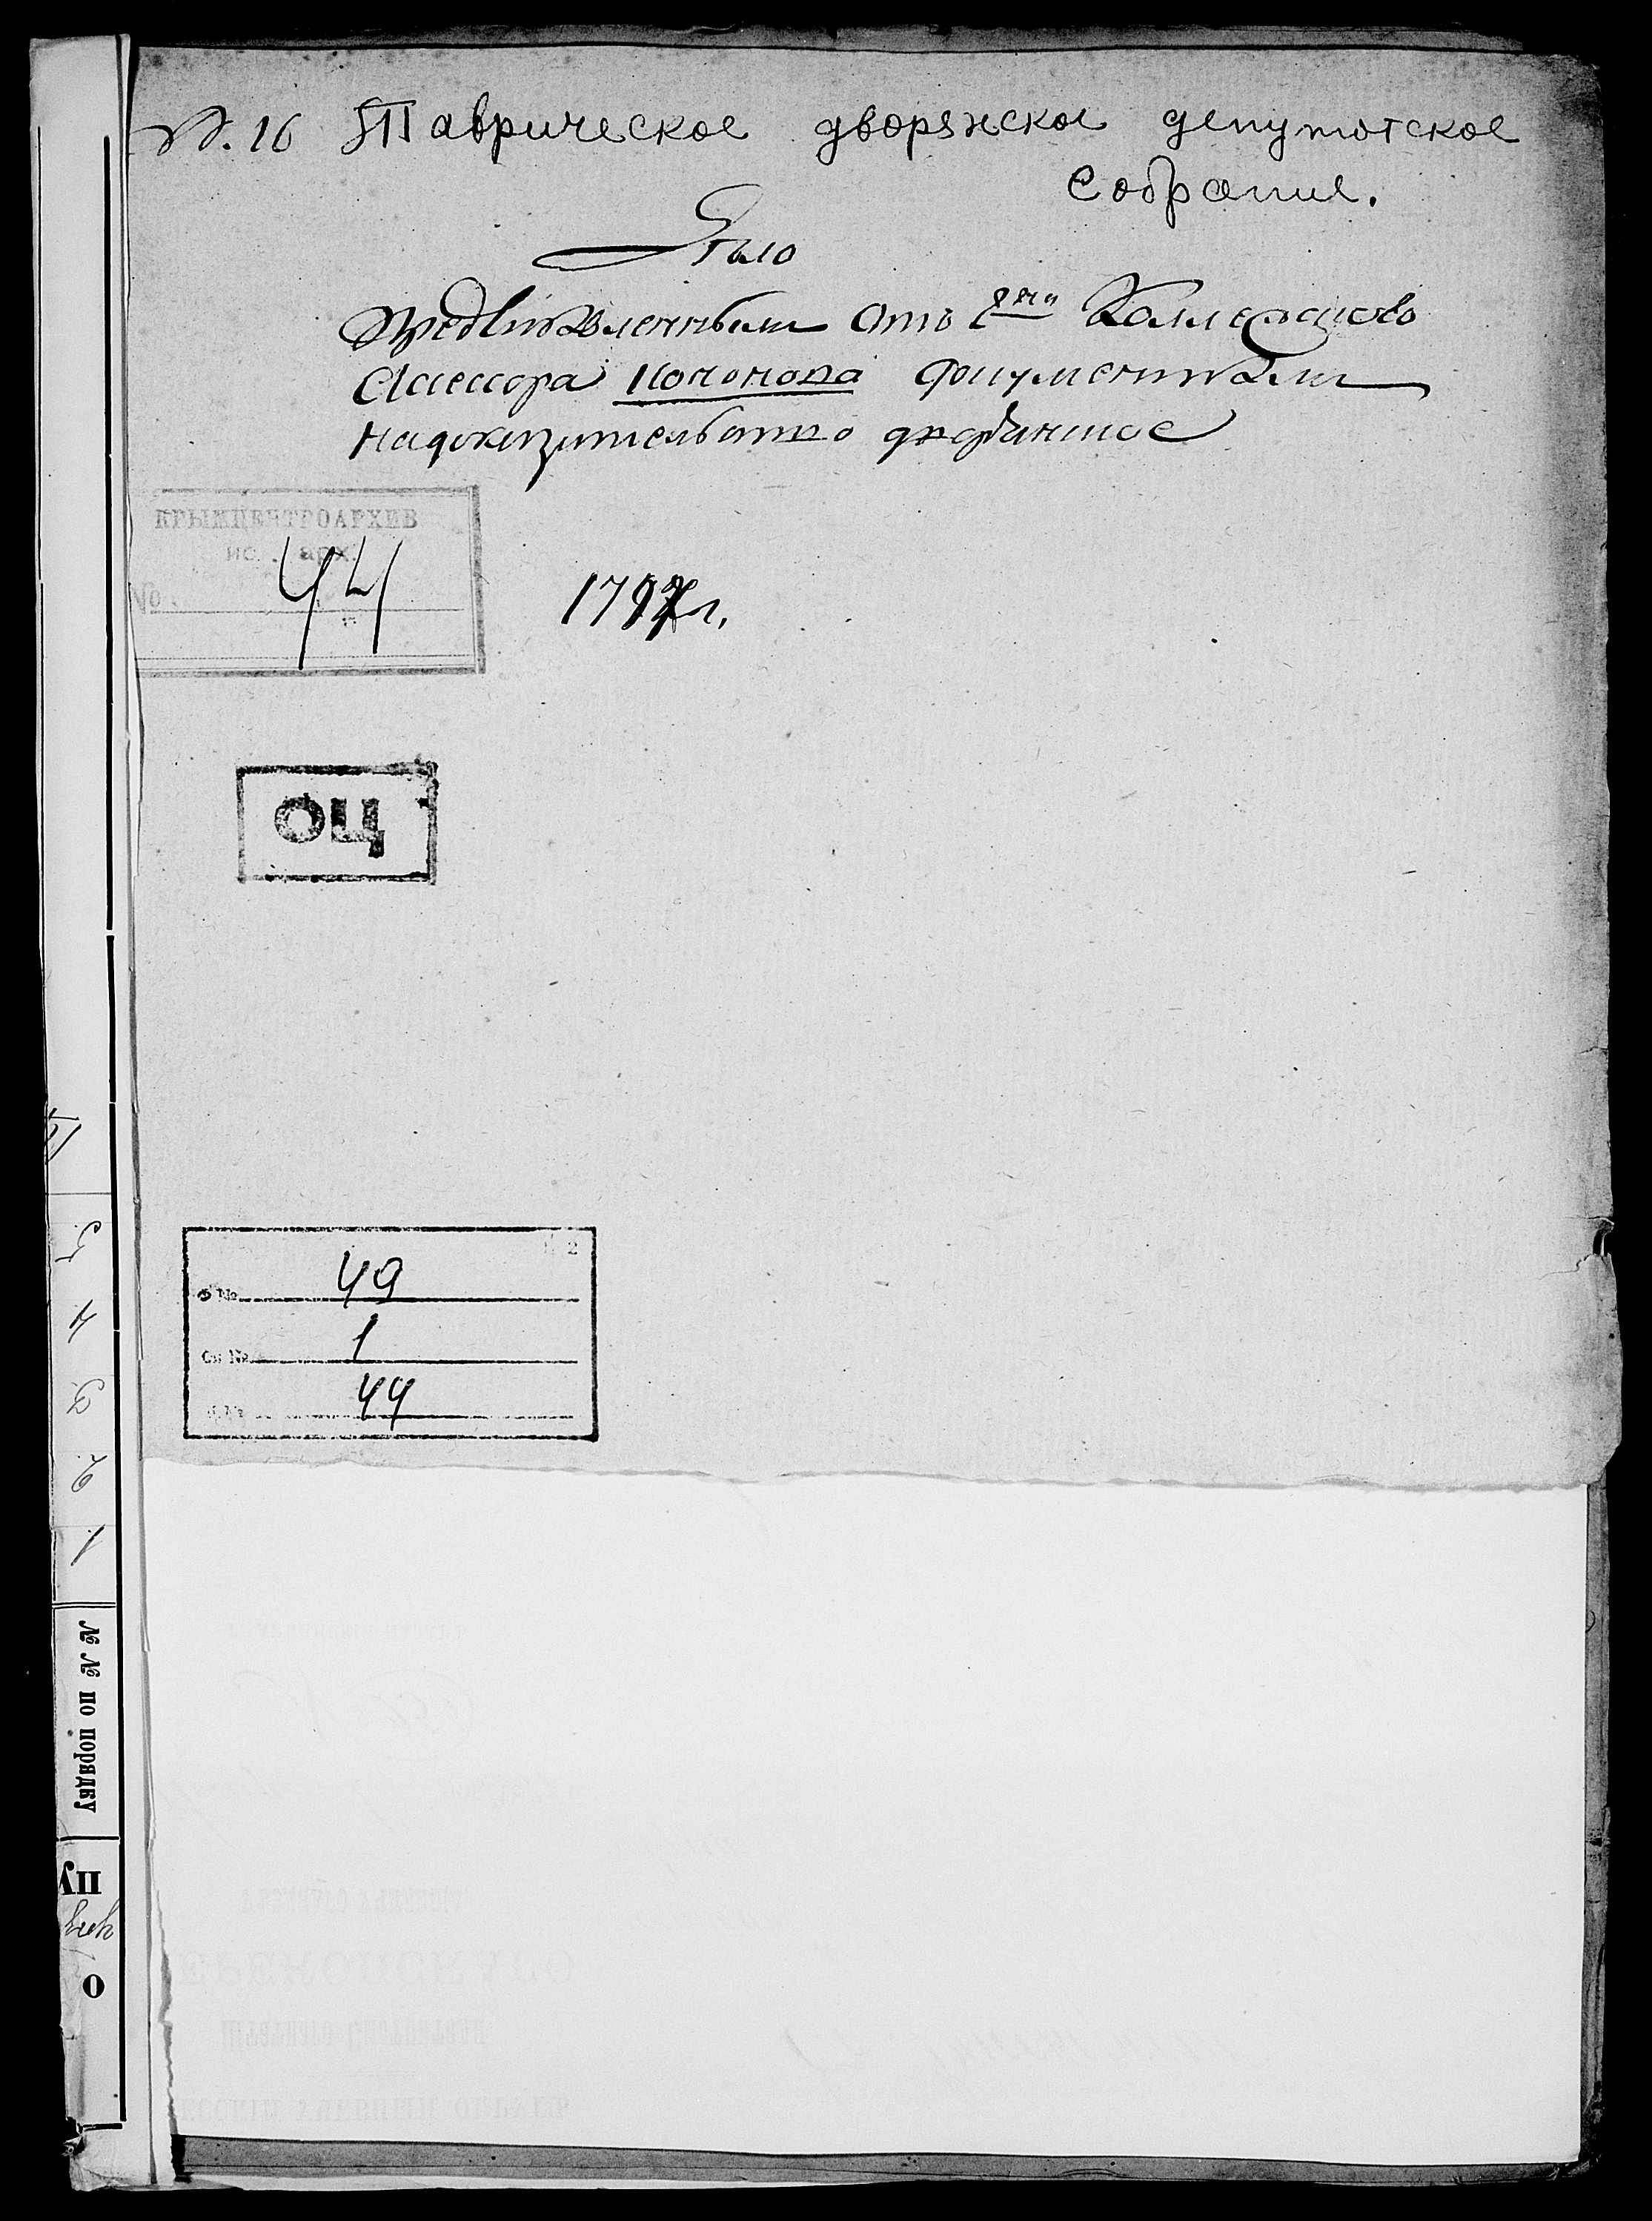 №. 16 Таврическое дворянское депутатское
Собрание.
Дѣло
Представленнымъ отъ Коллежского
Ассессора Кононова документами
на доказательство дворянское
КРЫМЦЕНТРОАРХИВ
арх.
№ 44
1797 г.
ОЦ
Ф № 49
Оп № 1
44
5
4
3
2
1
№ № по порядку